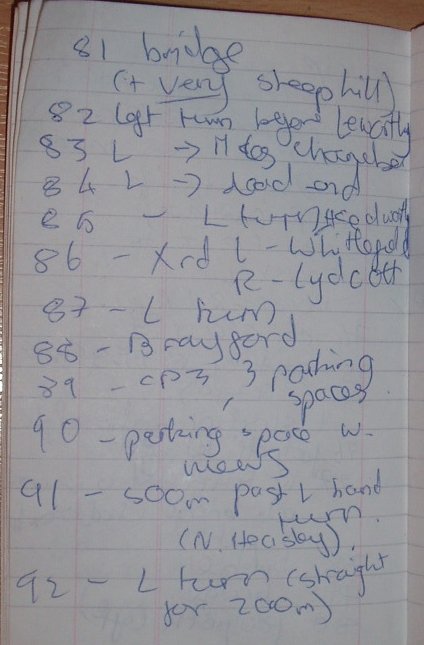 81 bridge
(+ very steep hill)
82 left turn before Leworthy
83 L →
84 L → dead end
85 - L turn
86 - Xrd L - Whitefield
R - Lydcott
87 - L turn
88 - Brayford
89 - CP3, 3 parking
spaces.
90 - parking space w.
views
91 - 500m past L hand
turn.
(N. Heasley).
92 - L turn (straight
for 200m)